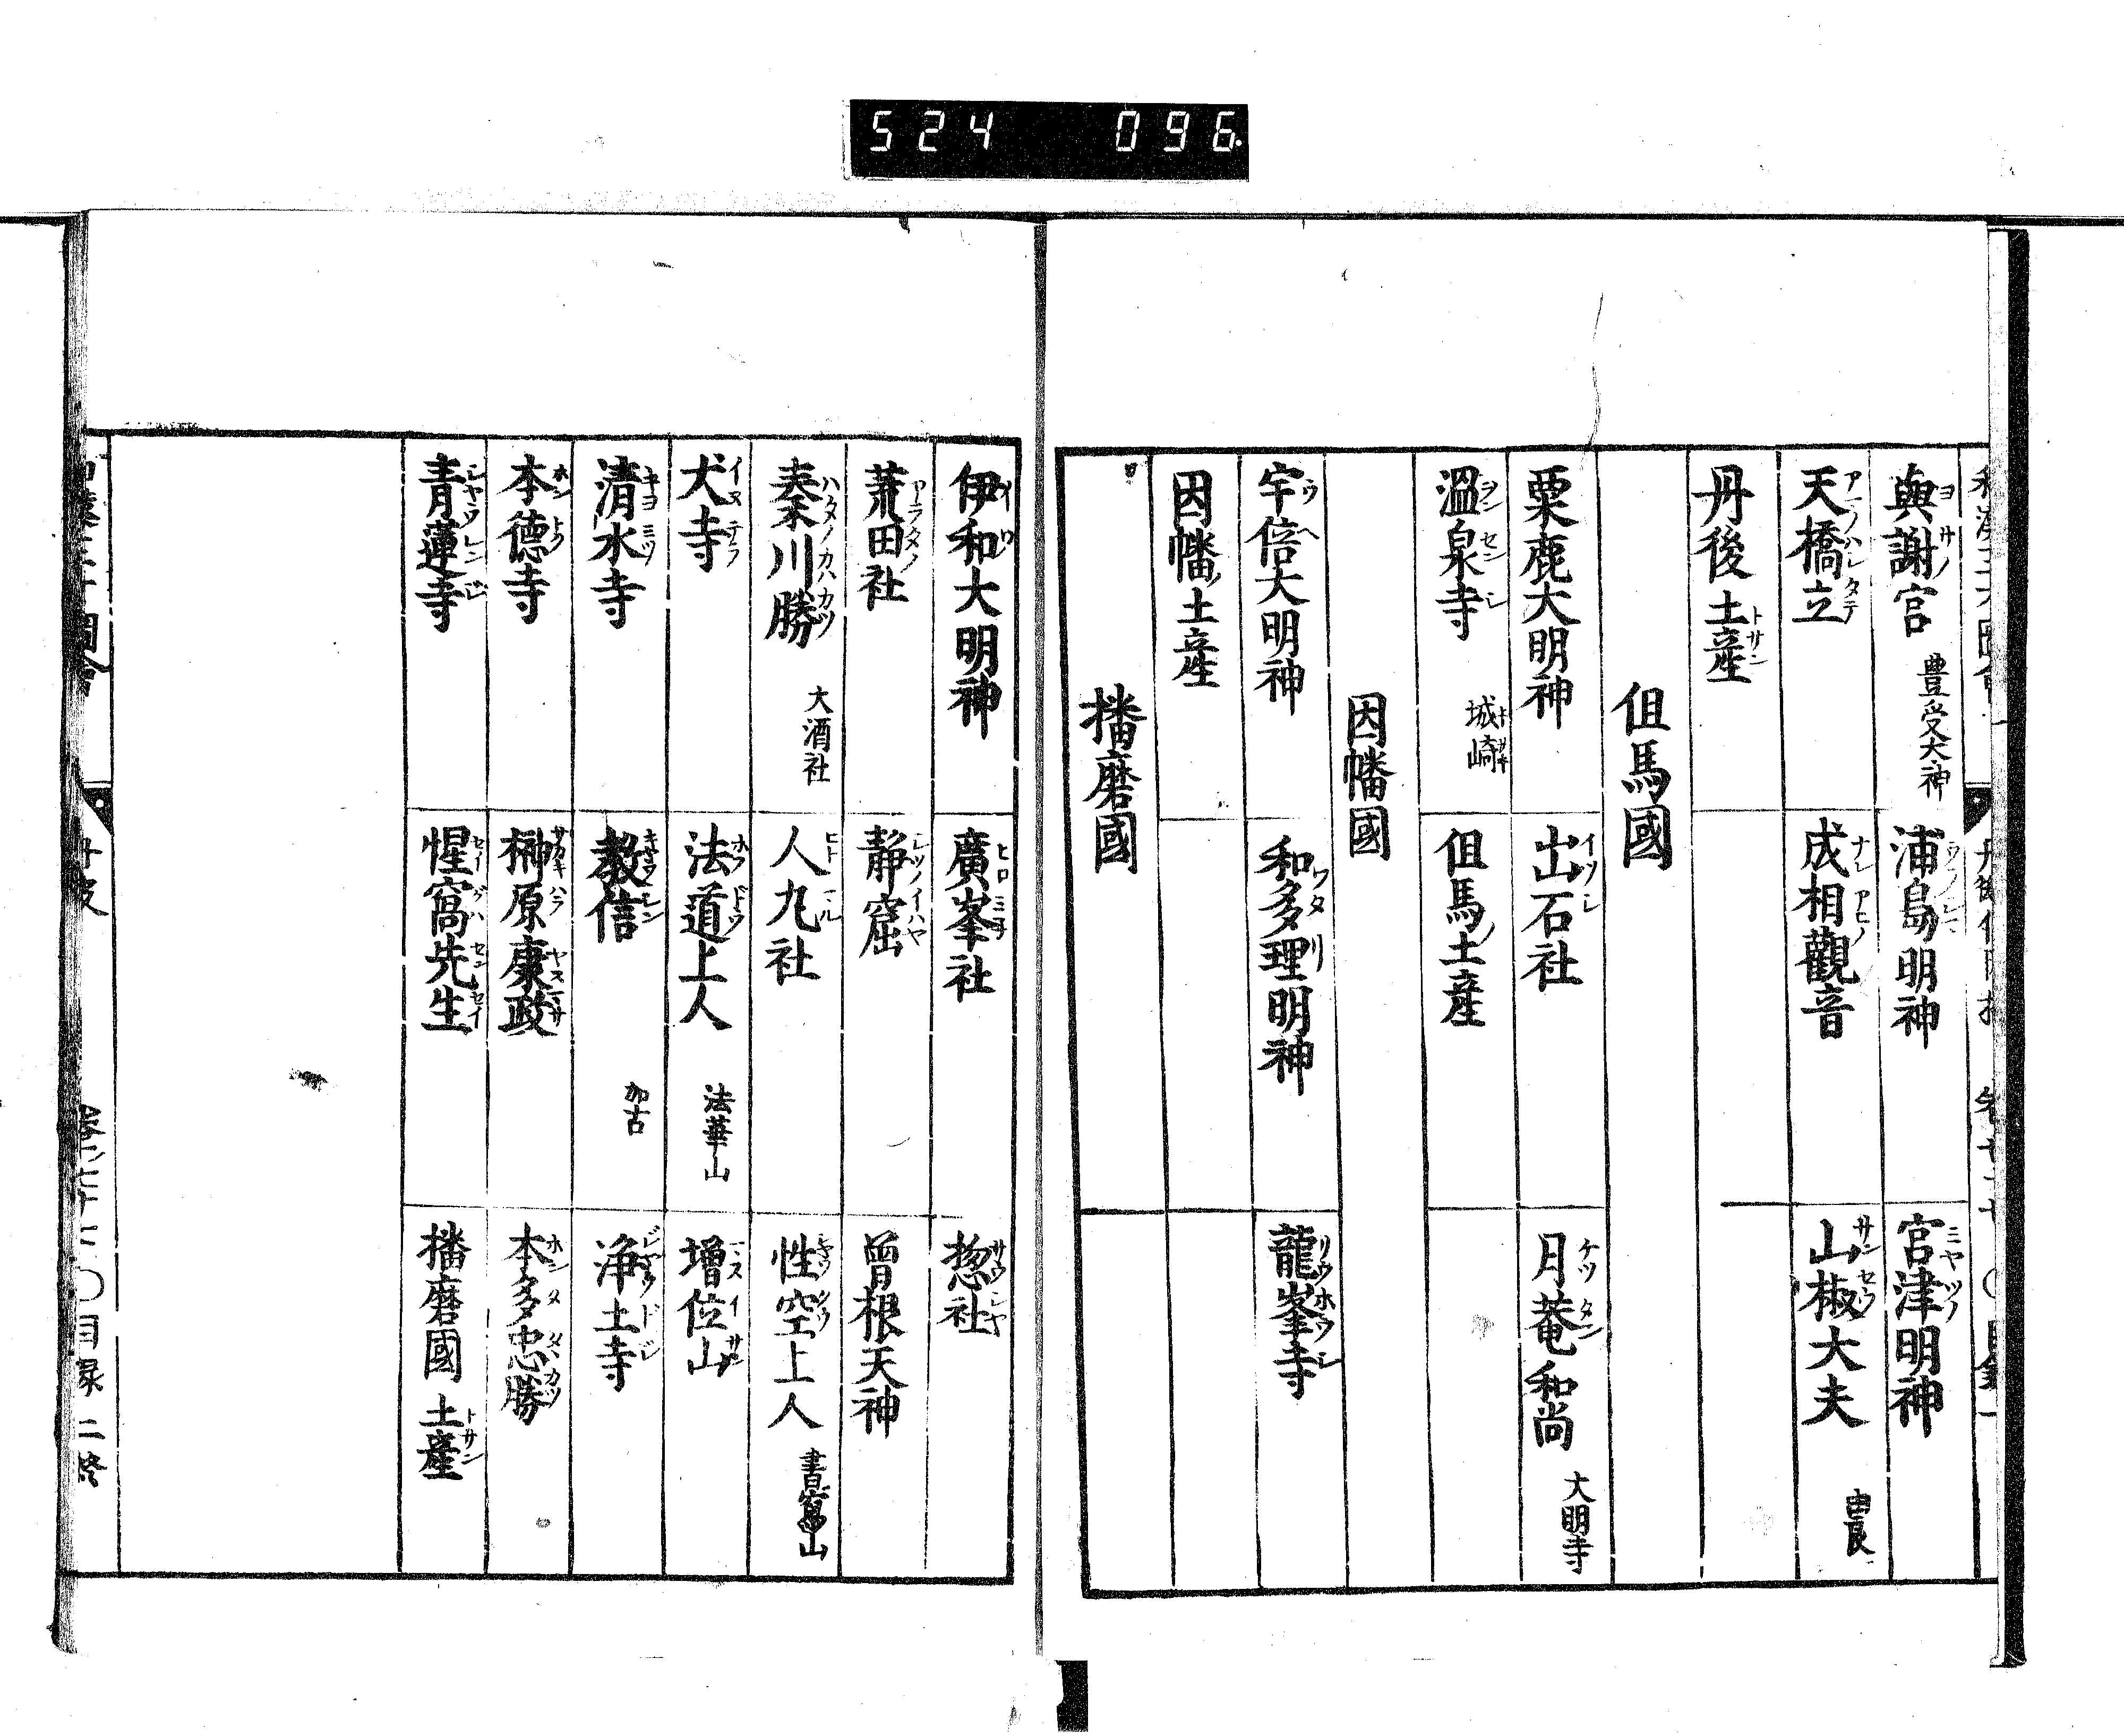 524 096
與謝宮 豊受大神
浦島明神
宮津明神
天橋立
成相觀音
山椒大夫 由良
丹後土產
但馬國
粟鹿大明神
出石社
月菴和尚 大明寺
溫泉寺 城崎
但馬ノ土產
因幡國
宇倍大明神
和多理明神
龍峯寺
因幡ノ土產
播磨國
伊和大明神
廣峯社
惣社
荒田社
靜窟
曾根天神
秦川勝 大酒社
人丸社
性空上人 書寫山
犬寺
法道上人 法華山
增位山
清水寺
教信 加古
浄土寺
本德寺
榊原康政
本多忠勝
青蓮寺
惺窩先生
播磨國土產